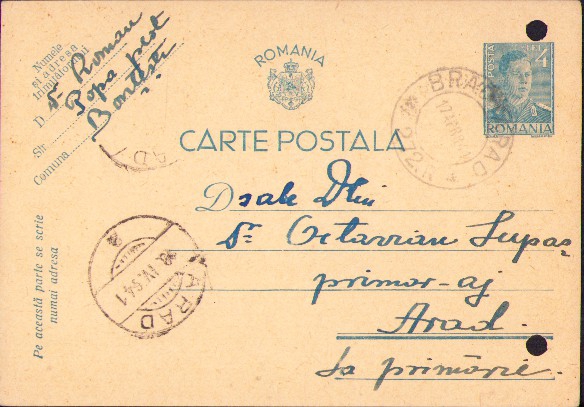 Numele
și adresa
trimițătorului
D. Dr Roman
Popa preot
Str.
Comuna Bontești
ROMANIA
CARTE POSTALA
POSTA
LEI 4
ROMANIA
BRAD ARAD
Nr 276
ARAD
18 IV. 941
Dsale Dlui
Dr Octavian Lupaș
primar-aj
Arad.
La primărie.
Pe această parte se scrie
numai adresa